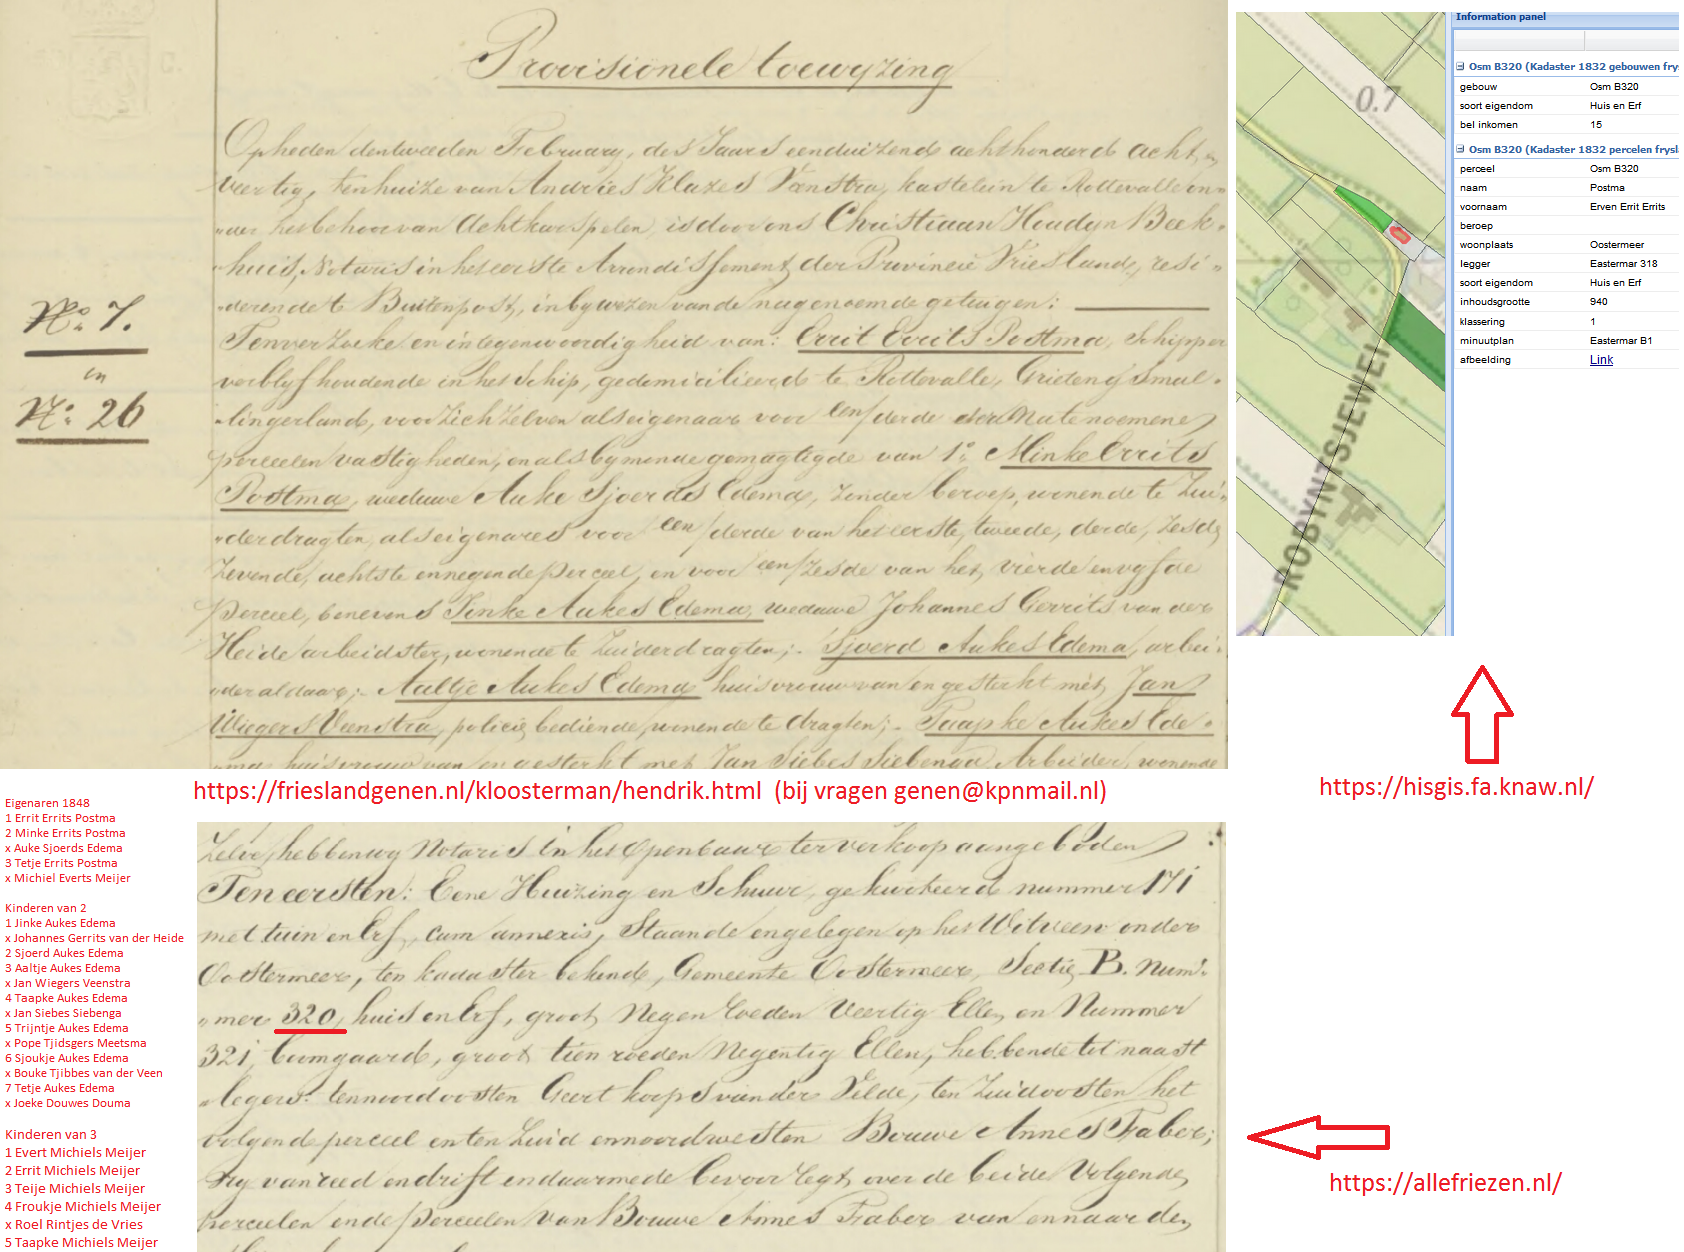 Provisionele toewyzing
Op heden den tweeden February, des Jaars eenduizend achthonderd acht en
veertig, ten huize van Andries Klazes Veenstra, kastelein te Rottevalle on-
der het behoor van Achtkarspelen, is door ons Christiaan Houdyn Beek-
huis, Notaris in het eerste Arrondissement der Provincie Vriesland, resi-
derende te Buitenpost, in bywezen van de nagenoemde getuigen:
Ten verzoeke en in tegenwoordigheid van: Errit Errits Postma, Schipper
verblyf houdende in het Schip, gedomicilieerd te Rottevalle, Grieteny Smal-
lingerland, voor zich zelven als eigenaar voor een/derde der natenoemene
perceelen vastigheden, en als by monde gemagtigde van 1º Minke Errits
Postma, weduwe Auke Sjoerds Edema, zonder beroep, wonende te Zui-
derdragten, als eigenares voor een/derde van het eerste, tweede, derde, zesde
zevende, achtste en negende perceel, en voor een/zesde van het vierde en vyfde
perceel, benevens Jinke Aukes Edema, weduwe Johannes Gerrits van der
Heide arbeidster, wonende te Zuiderdragten;- Sjoerd Aukes Edema, arbei-
der aldaar;- Aaltje Aukes Edema huisvrouw van en gesterkt met Jan
Wiegers Veenstra, policie bediende, wonende te dragten;- Taapke Aukes Ede-
ma huisvrouw van en gesterkt met Jan Siebes Siebenga Arbeider, wonende
Nº 7.
in
Nº 26
0.7
ROBYNTSJEWEI
Information panel
Osm B320 (Kadaster 1832 gebouwen frys
gebouw Osm B320
soort eigendom Huis en Erf
bel inkomen 15
Osm B320 (Kadaster 1832 percelen frysl
perceel Osm B320
naam Postma
voornaam Erven Errit Errits
beroep
woonplaats Oostermeer
legger Eastermar 318
soort eigendom Huis en Erf
inhoudsgrootte 940
klassering 1
minuutplan Eastermar B1
afbeelding Link
https://frieslandgenen.nl/kloosterman/hendrik.html (bij vragen genen@kpnmail.nl)
https://hisgis.fa.knaw.nl/
Eigenaren 1848
1 Errit Errits Postma
2 Minke Errits Postma
x Auke Sjoerds Edema
3 Tetje Errits Postma
x Michiel Everts Meijer
Kinderen van 2
1 Jinke Aukes Edema
x Johannes Gerrits van der Heide
2 Sjoerd Aukes Edema
3 Aaltje Aukes Edema
x Jan Wiegers Veenstra
4 Taapke Aukes Edema
x Jan Siebes Siebenga
5 Trijntje Aukes Edema
x Pope Tjidsgers Meetsma
6 Sjoukje Aukes Edema
x Bouke Tjibbes van der Veen
7 Tetje Aukes Edema
x Joeke Douwes Douma
Kinderen van 3
1 Evert Michiels Meijer
2 Errit Michiels Meijer
3 Teije Michiels Meijer
4 Froukje Michiels Meijer
x Roel Rintjes de Vries
5 Taapke Michiels Meijer
Zelve, hebben wy Notaris in het openbaar ter verkoop aangeboden
Ten eersten: Eene Huizing en Schuur, gekwoteerd nummer 171
met tuin en Erf, cum annexis, Staande en gelegen op het Witveen onder
Oostermeer, ten kadaster bekend, Gemeente Oostermeer, Sectie B. num-
mer 320, huis en Erf, groot Negen roeden Veertig Ellen en Nummer
321, boomgaard, groot tien roeden Negentig Ellen, hebbende tot naast
legers: ten noordoosten Geert Koops van der Velde, ten Zuidoosten het
volgende perceel en ten Zuid en noordwesten Bouwe Annes Faber;
Vry van reed en drift en daarmede bevoorlegt, over de beide Volgende
perceelen en de perceelen van Bouwe Annes Faber van en naar den
https://allefriezen.nl/